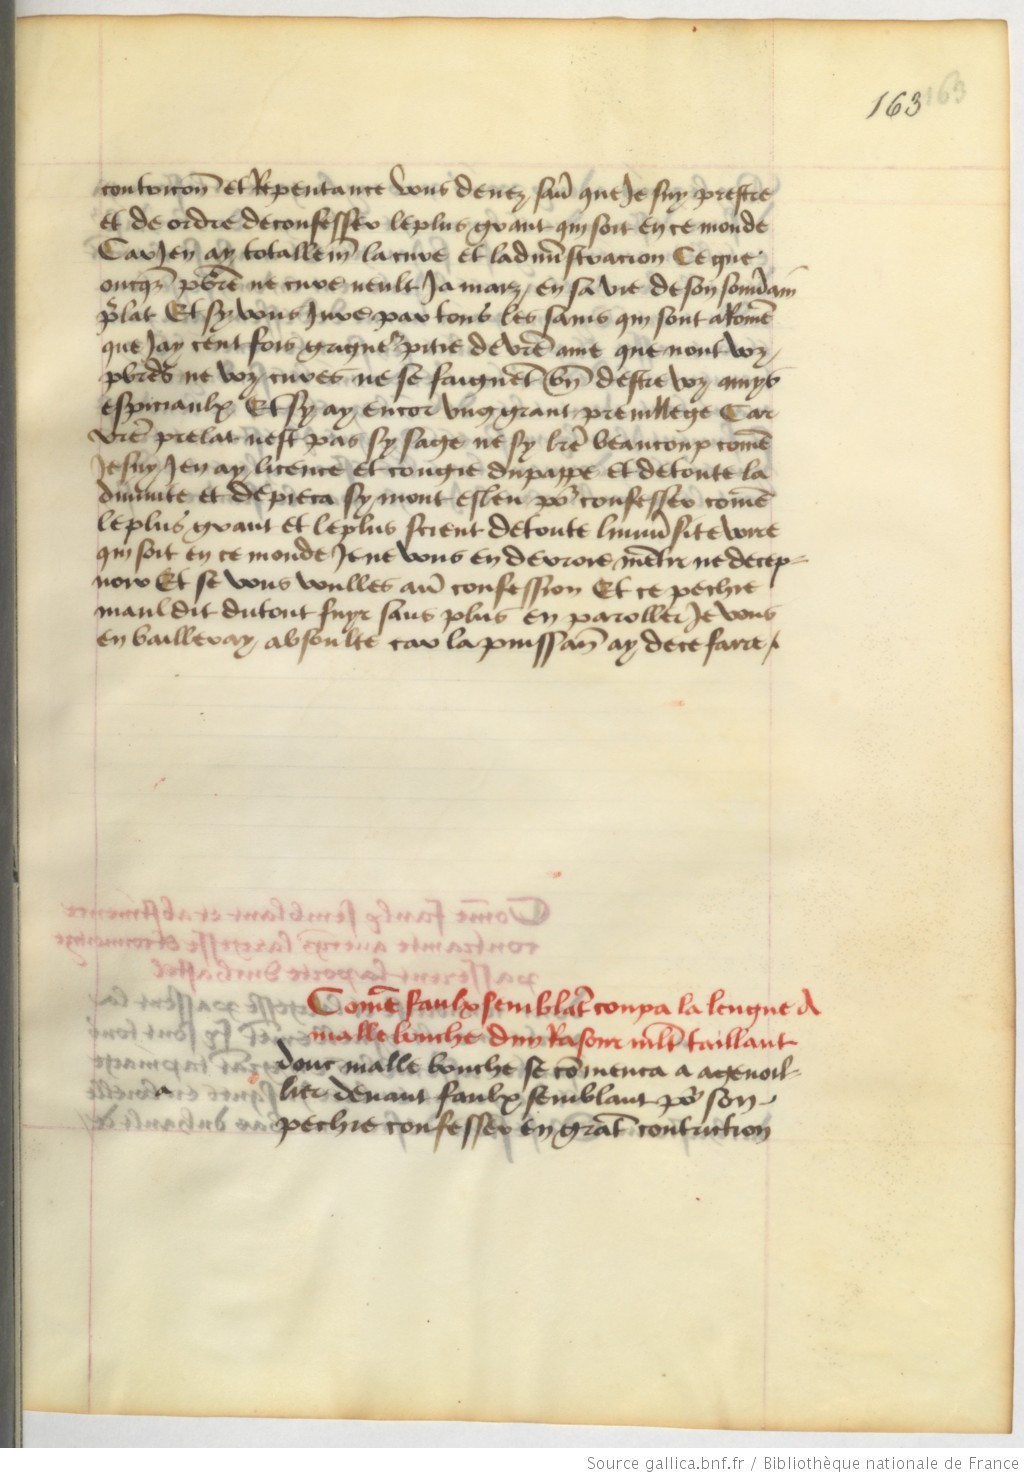 163 163
contricõn et Repentance vous devez sav̄ que Je suy prestre
et de ordre de confesser le plus grant qui soit en ce monde
Car Jen ay totallem̄t la cure et ladmīstracion Ce que
oncqz pb̄re ne cure neult Jamaiz en sa vie de son
p̄lat Et sy vous Jure par tous les sains qui sont a Rom̄e
que Jay cent fois grigneʳ pitie de vr̄e ame que nont voz
pb̄res ne voz cures ne se faignēt bn̄ destre voz amys
espiciaulx Et sy ay encor ung grant previllege Car
vr̄e prelat nest pas sy sage ne sy lr̄e beaucoup com̄e
Je suy Jen ay licence et congie du pappe et de toute la
divinite et de pieca sy mont esleu poʳ confesser com̄e
le plus grant et le plus scient de toute luniv̄site voire
qui soit en ce monde Je ne vous en devroie mētir ne decep-
voir Et se vous voulles av̄ confession Et ce pechie
mauldit du tout fuyr sans plus en paroller Je vous
en bailleray absoulte car la puissan̄ ay de ce faire
Com̄e faulx semblāt coupa la lengue A
malle bouche dun Rasoir mlt̄ taillant
donc malle bouche se cōmenca a agenoil-
a lier devant faulx semblant poʳ son
pechie confesser en grāt contriction
Source gallica.bnf.fr / Bibliothèque nationale de France